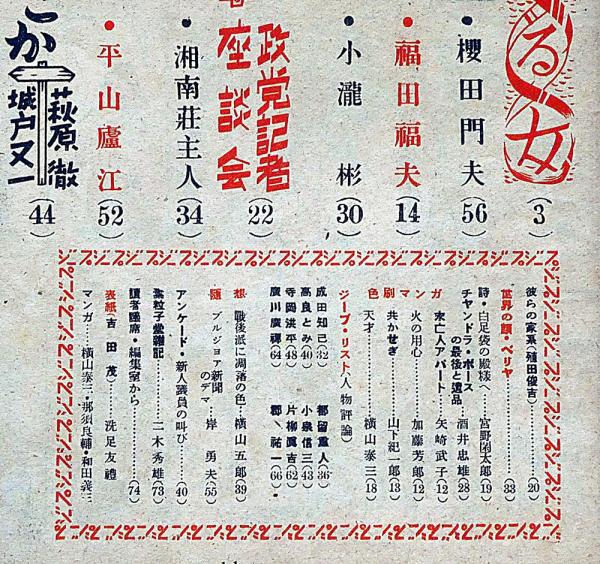 ぶる女
(3)
●櫻田門夫
(56)
●福田福夫
(14)
●小瀧彬
(30)
政党記者
座談会
(22)
●湘南荘主人
(34)
●平山廬江
(52)
萩原徹
城戸又一
か
(44)
彼らの家系(殖田俊吉)……20
世界の顔・ベリヤ……33
詩・白足袋の殿様へ……宮野園太郎(19)
チャンドラ・ボース
の最後と遺品……酒井忠雄(28)
未亡人アパート……矢崎武子(12)
マンガ
火の用心……加藤芳郎(12)
共かせぎ……山下紀一郎(13)
色刷
天才……横山泰三(18)
ジープ・リスト(人物評論)
成田知巳(32) 都留重人(36)
高良とみ(40) 小泉信三(43)
寺岡洪平(48) 片柳眞吉(62)
廣川廣禪(64) 郡祐一(66)
随想
戰後派に凋落の色…横山五郎(39)
ブルジョア新聞
のデマ……岸勇夫(55)
アンケード・新人議員の叫び……(40)
葉粒子堂雑記……二木秀雄(73)
讀者議席・編集室から……(74)
表紙(吉田茂)……洗足友禮
マンガ……横山泰三・那須良輔・和田義三